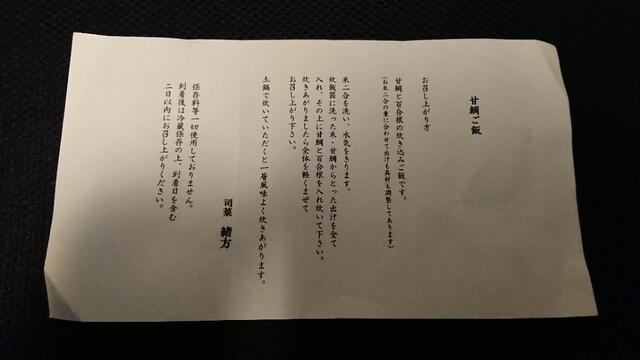 甘鯛ご飯
お召し上がり方
甘鯛と百合根の炊き込みご飯です。
(お米二合の量に合わせて出汁も具材も調整してあります)
米二合を洗い、水気をきります。
炊飯器に洗った米・甘鯛からとった出汁を全て
入れ、その上に甘鯛と百合根を入れ炊いて下さい。
炊きあがりましたら全体を軽くまぜて
お召し上がり下さい。
土鍋で炊いていただくと一層風味よく炊きあがります。
司菜 緒方
保存料等一切使用しておりません。
到着後は冷蔵保存の上、到着日を含む
二日以内にお召し上がりください。